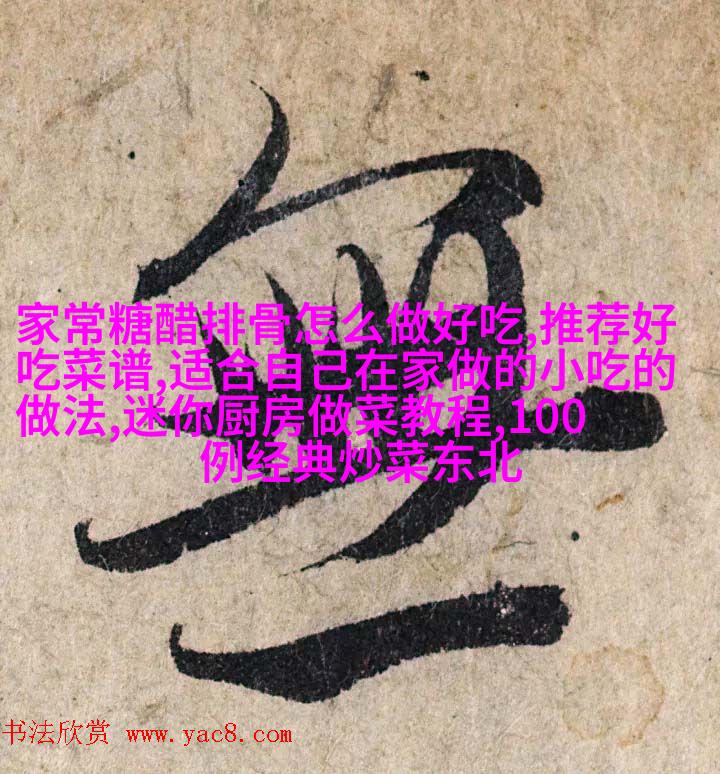 無
家常糖醋排骨怎么做好吃,推荐好
吃菜谱,适合自己在家做的小吃的
做法,迷你厨房做菜教程,100
例经典炒菜东北
书法欣赏 www.yac8.com